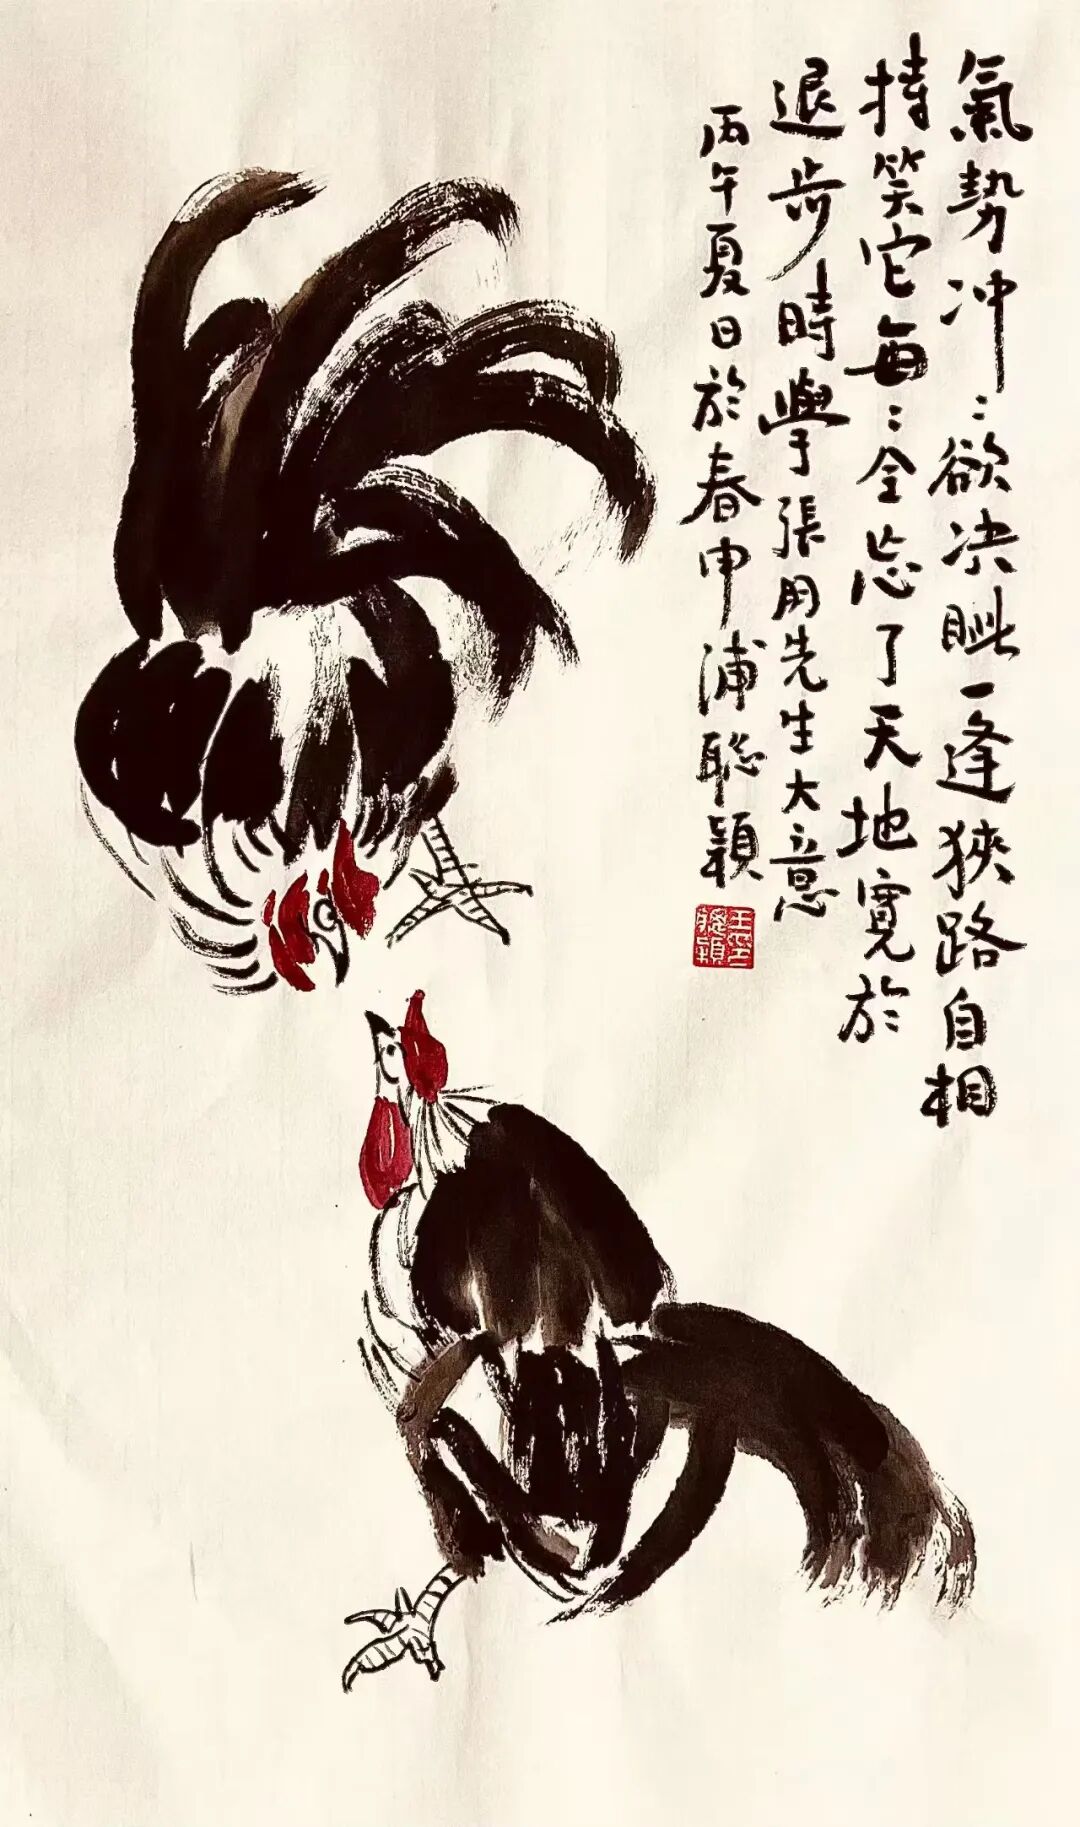 氣勢冲〻欲决眦一逢狹路自相
持笑它每〻全忘了天地寬於
退步時學張用先生大意
丙午夏日於春申浦聪穎